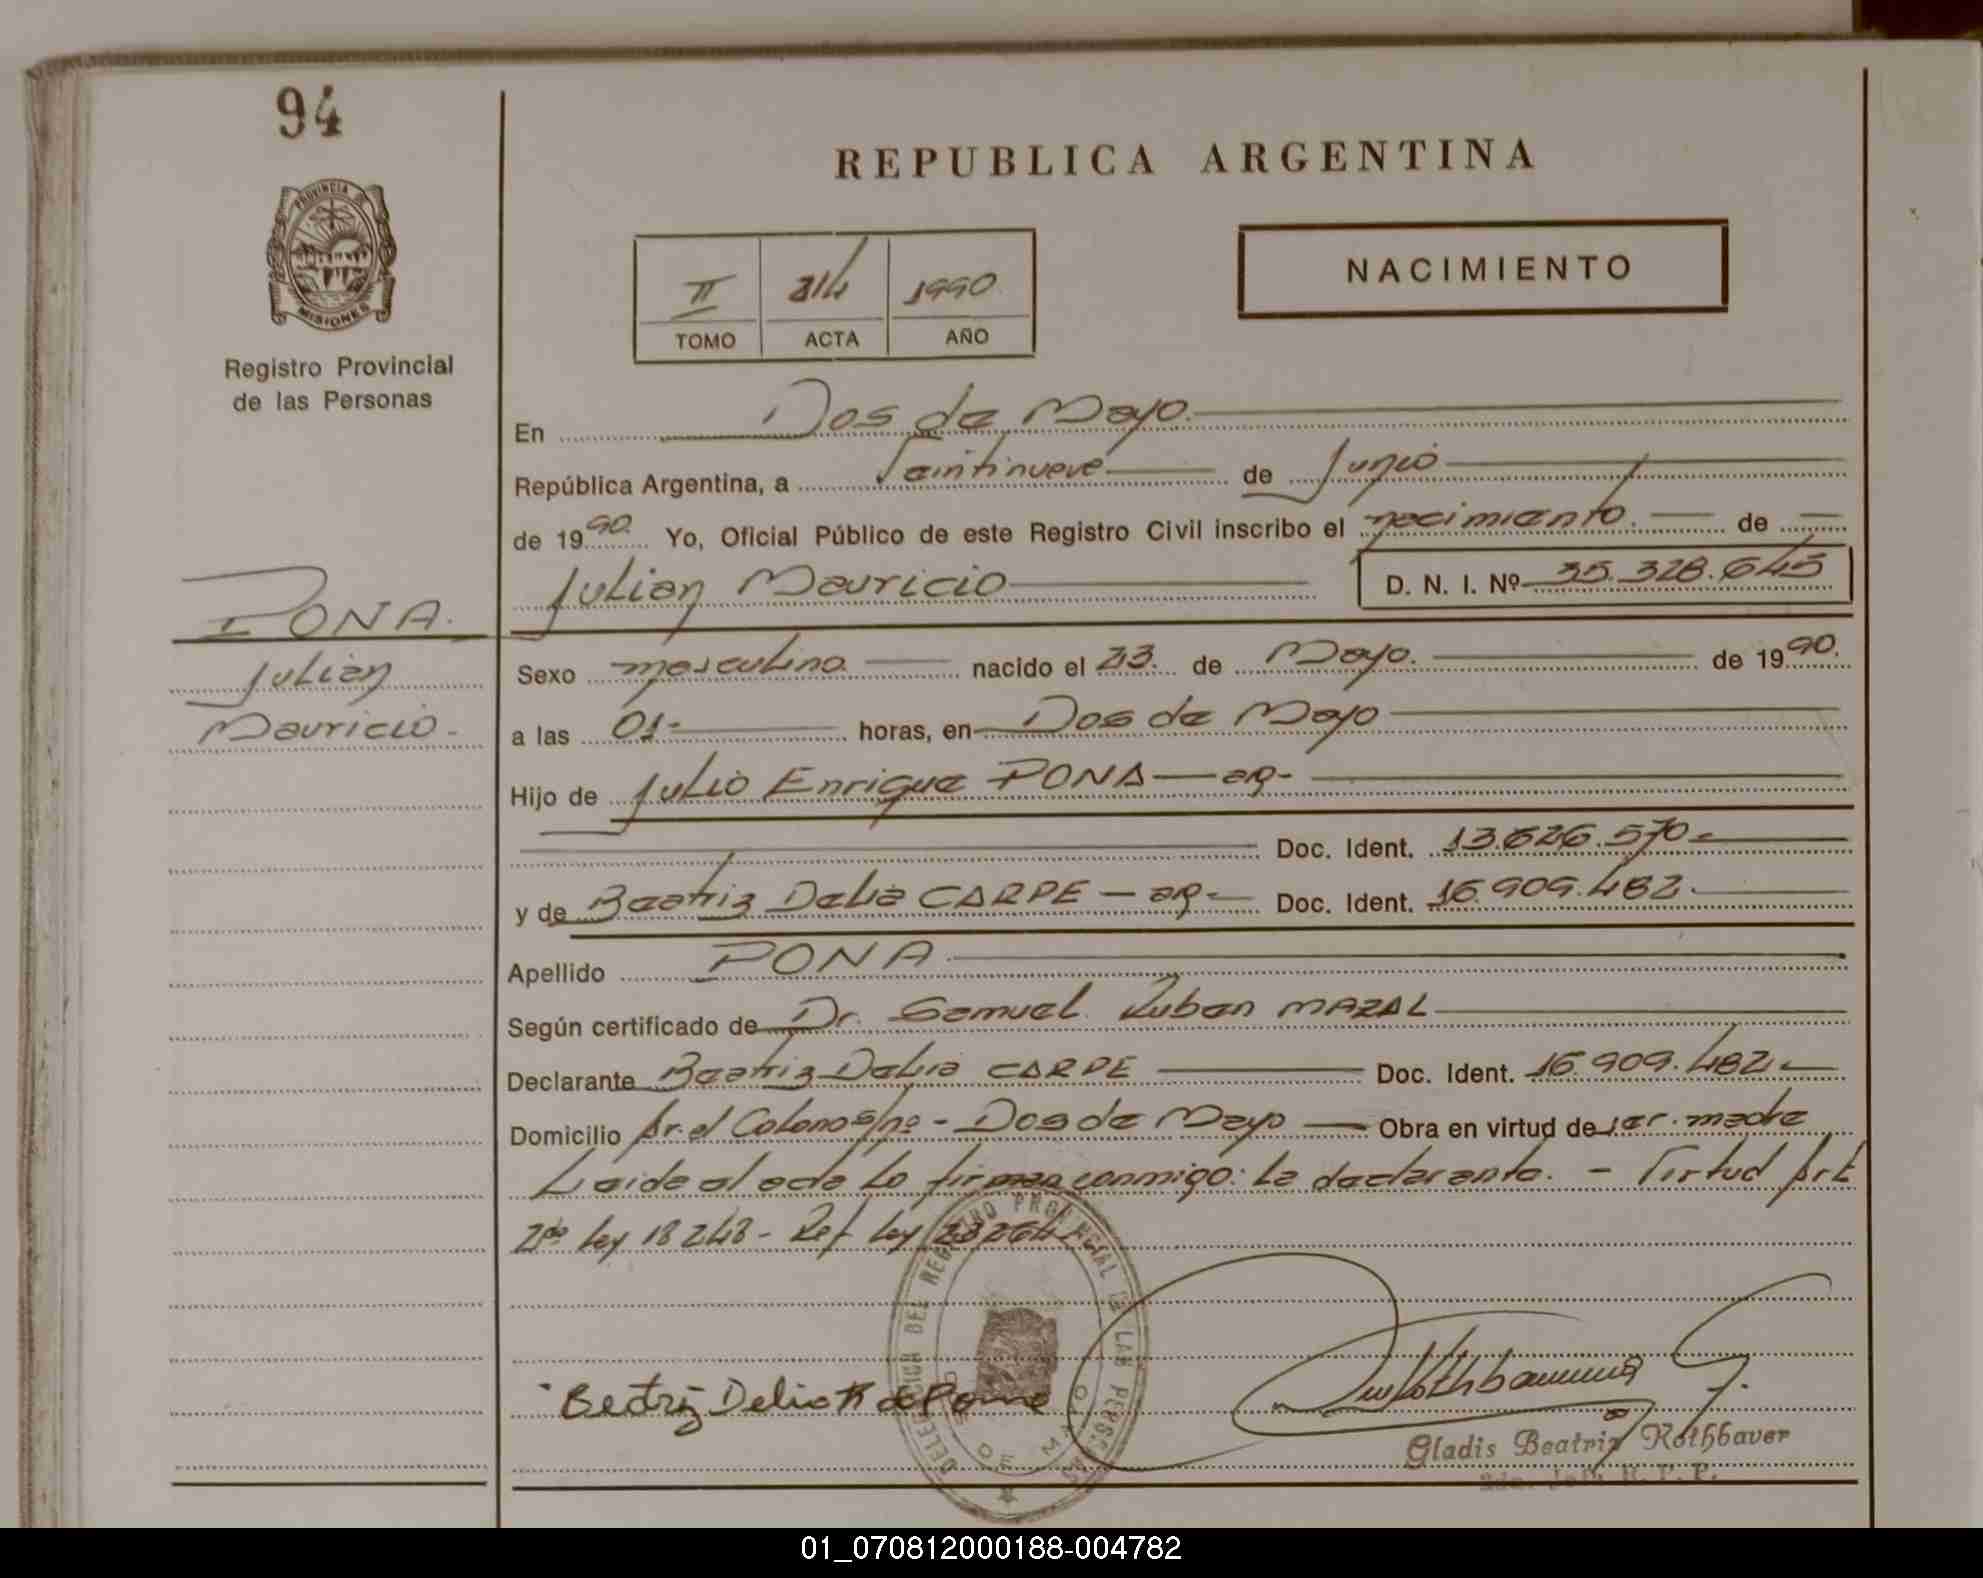 94
REPUBLICA ARGENTINA
PROVINCIA DE
MISIONES
Registro Provincial
de las Personas
II 214 1990
TOMO ACTA AÑO
NACIMIENTO
En Dos de Mayo.
República Argentina, a Veintinueve de Junio
de 1990. Yo, Oficial Público de este Registro Civil inscribo el nacimiento. de
Julian Mauricio D. N. I. Nº 35.328.645
PONA.
Julian
Mauricio -
Sexo masculino nacido el 23. de Mayo. de 1990.
a las 01- horas, en Dos de Mayo
Hijo de Julio Enrique PONA - ar -
Doc. Ident. 13.626.570-
y de Beatriz Delia CARPE - ar - Doc. Ident. 16.909.482.
Apellido PONA
Según certificado de Dr. Samuel Ruben MAZAL
Declarante Beatriz Delia CARPE Doc. Ident. 16.909.482-
Domicilio Br. el Colono s/nº - Dos de Mayo Obra en virtud de ser madre
Leida el acta la firman conmigo: la declarante. - Virtud Art
2do ley 18248 - Ref ley 23264
DELEGACION DEL REGISTRO PROVINCIAL DE LAS PERSONAS
DOS DE MAYO
Beatriz Delia de Pona
Rothbauer G.
Gladis Beatriz Rothbaver
R. P. P.
01_070812000188-004782